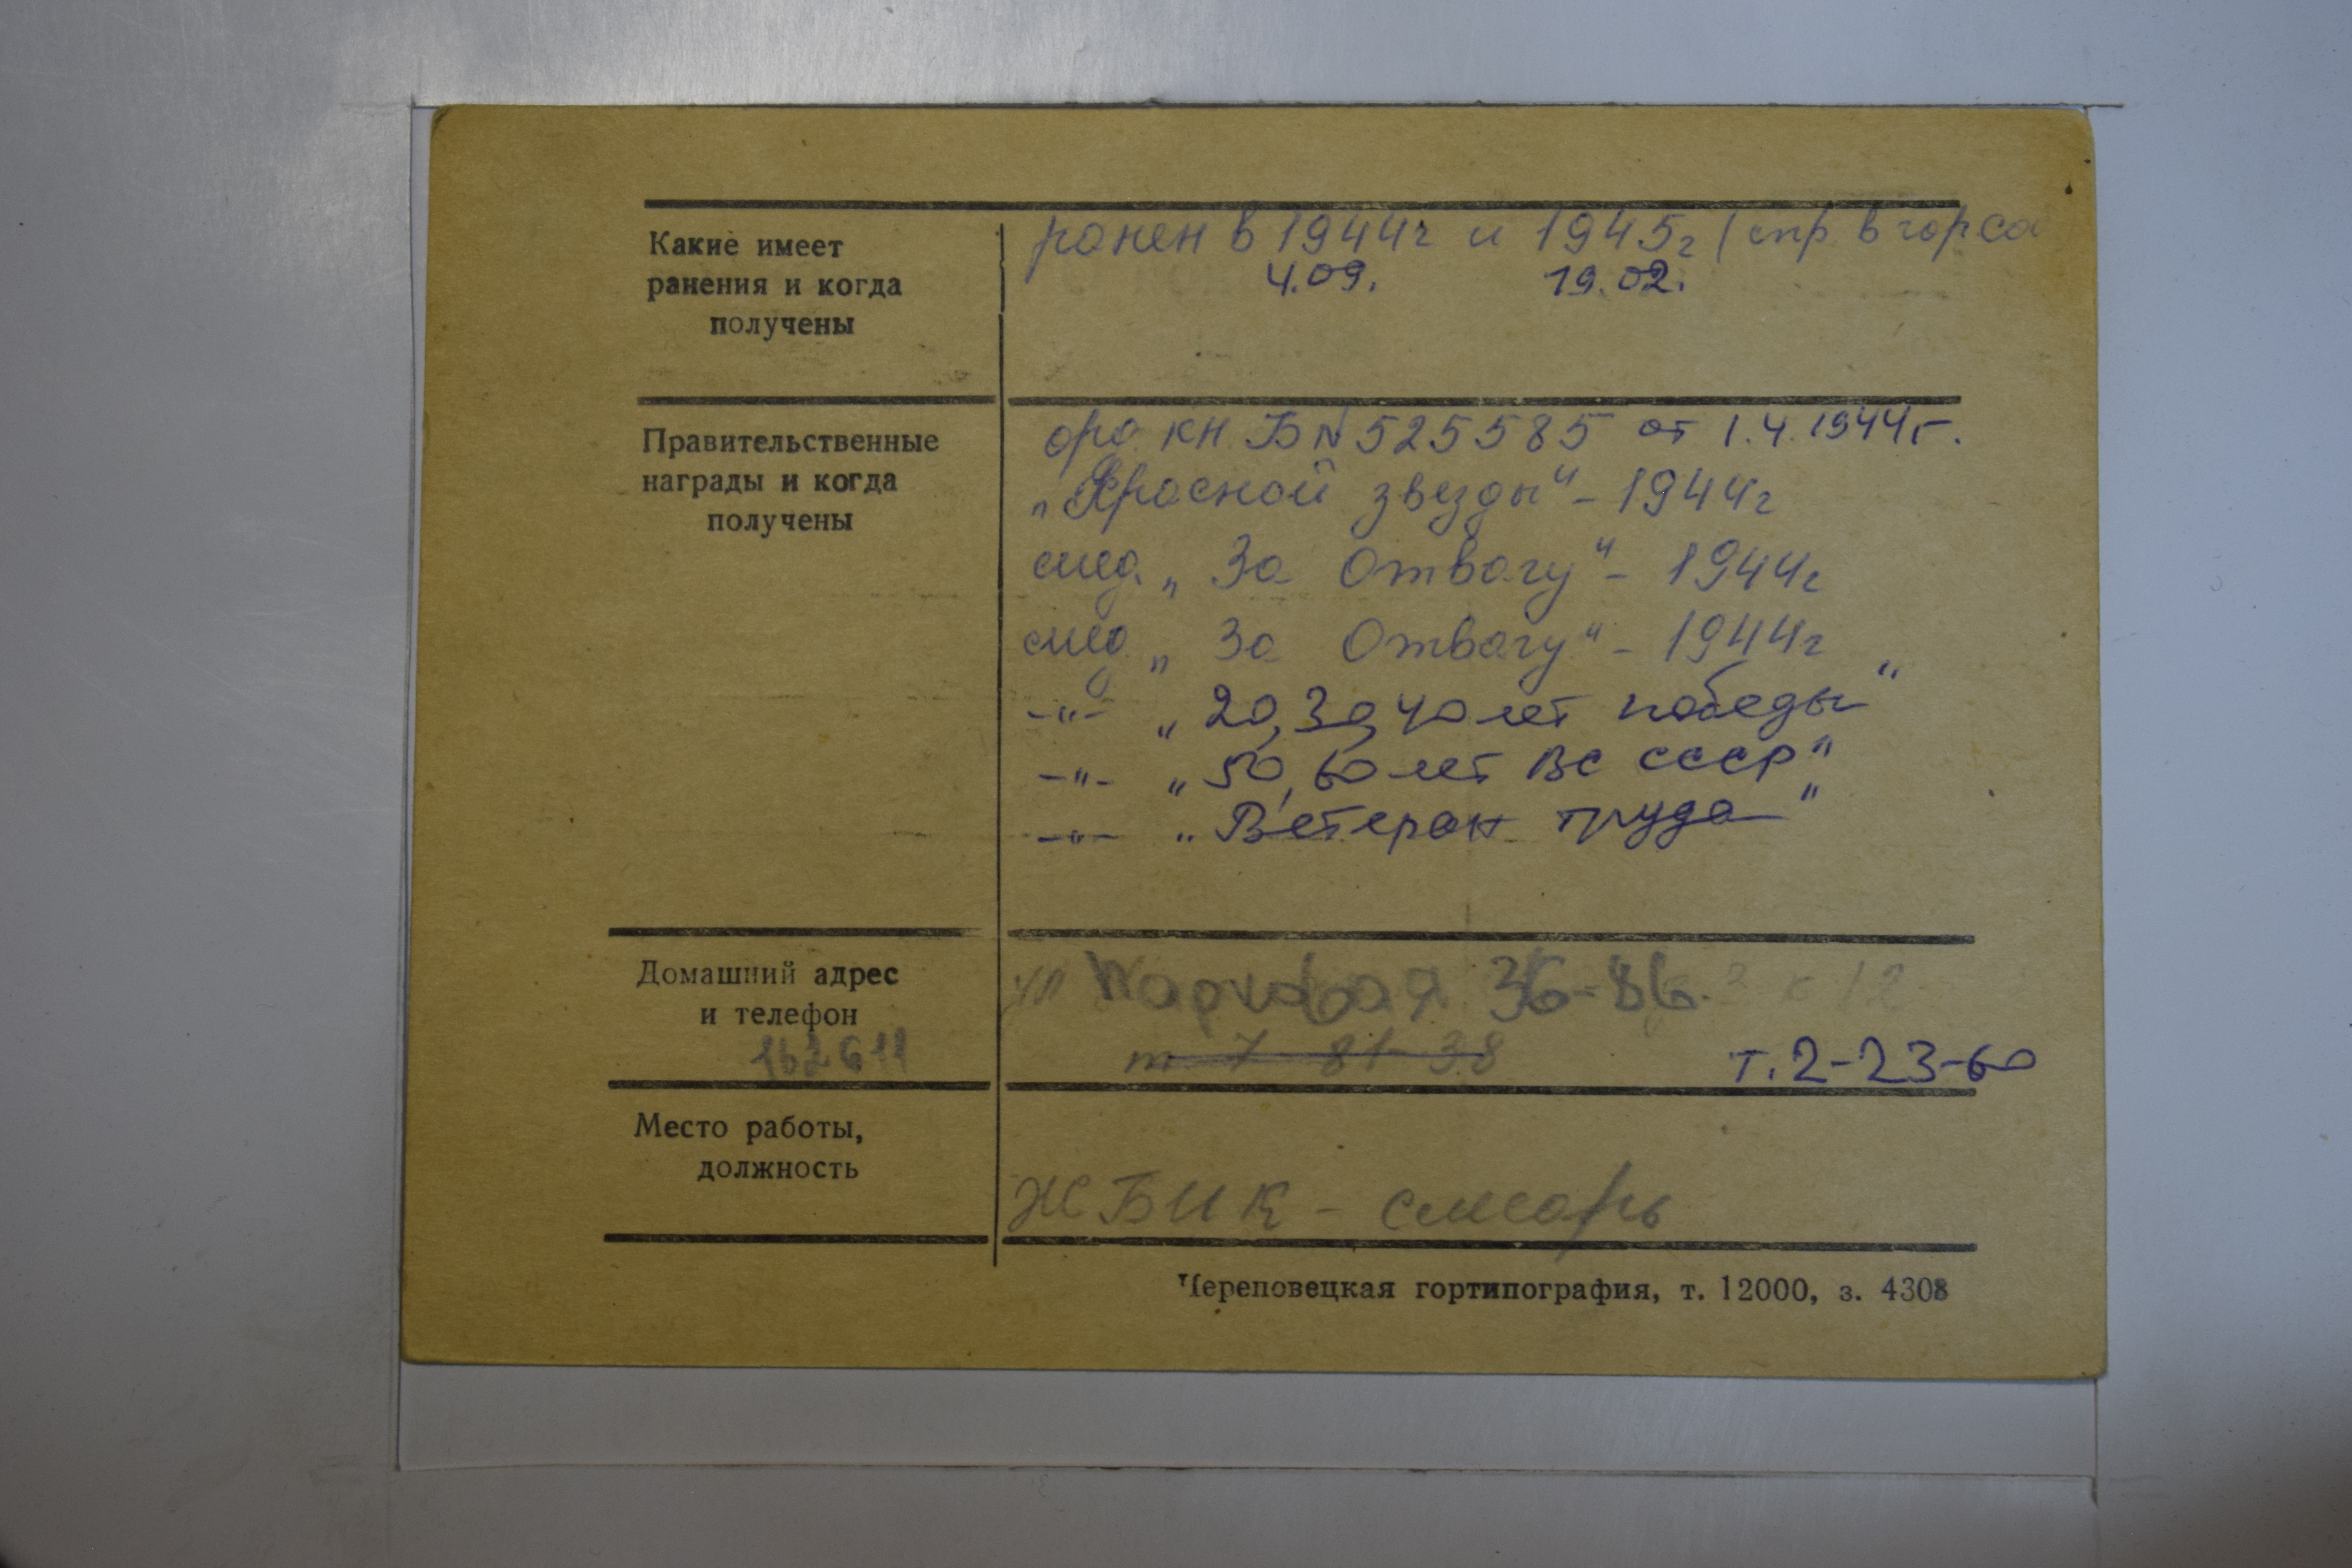 Какие имеет
ранения и когда
получены
ранен в 1944г и 1945г (спр в горсо
4.09. 19.02.
Правительственные
награды и когда
получены
орд. кн. Б № 525585 от 1.4.1944г.
„Красной звезды" - 1944г
мед. „За Отвагу" - 1944г
мед. „За Отвагу" - 1944г
-"- „20, 30, 40 лет победы"
-"- „50, 60 лет ВС СССР"
-"- „Ветеран труда"
Домашний адрес
и телефон
162611
ул Парковая 36-86.
т 7 81-38
т. 2-23-60
Место работы,
должность
ЖБИК - слесарь
Череповецкая гортипография, т. 12000, з. 4308